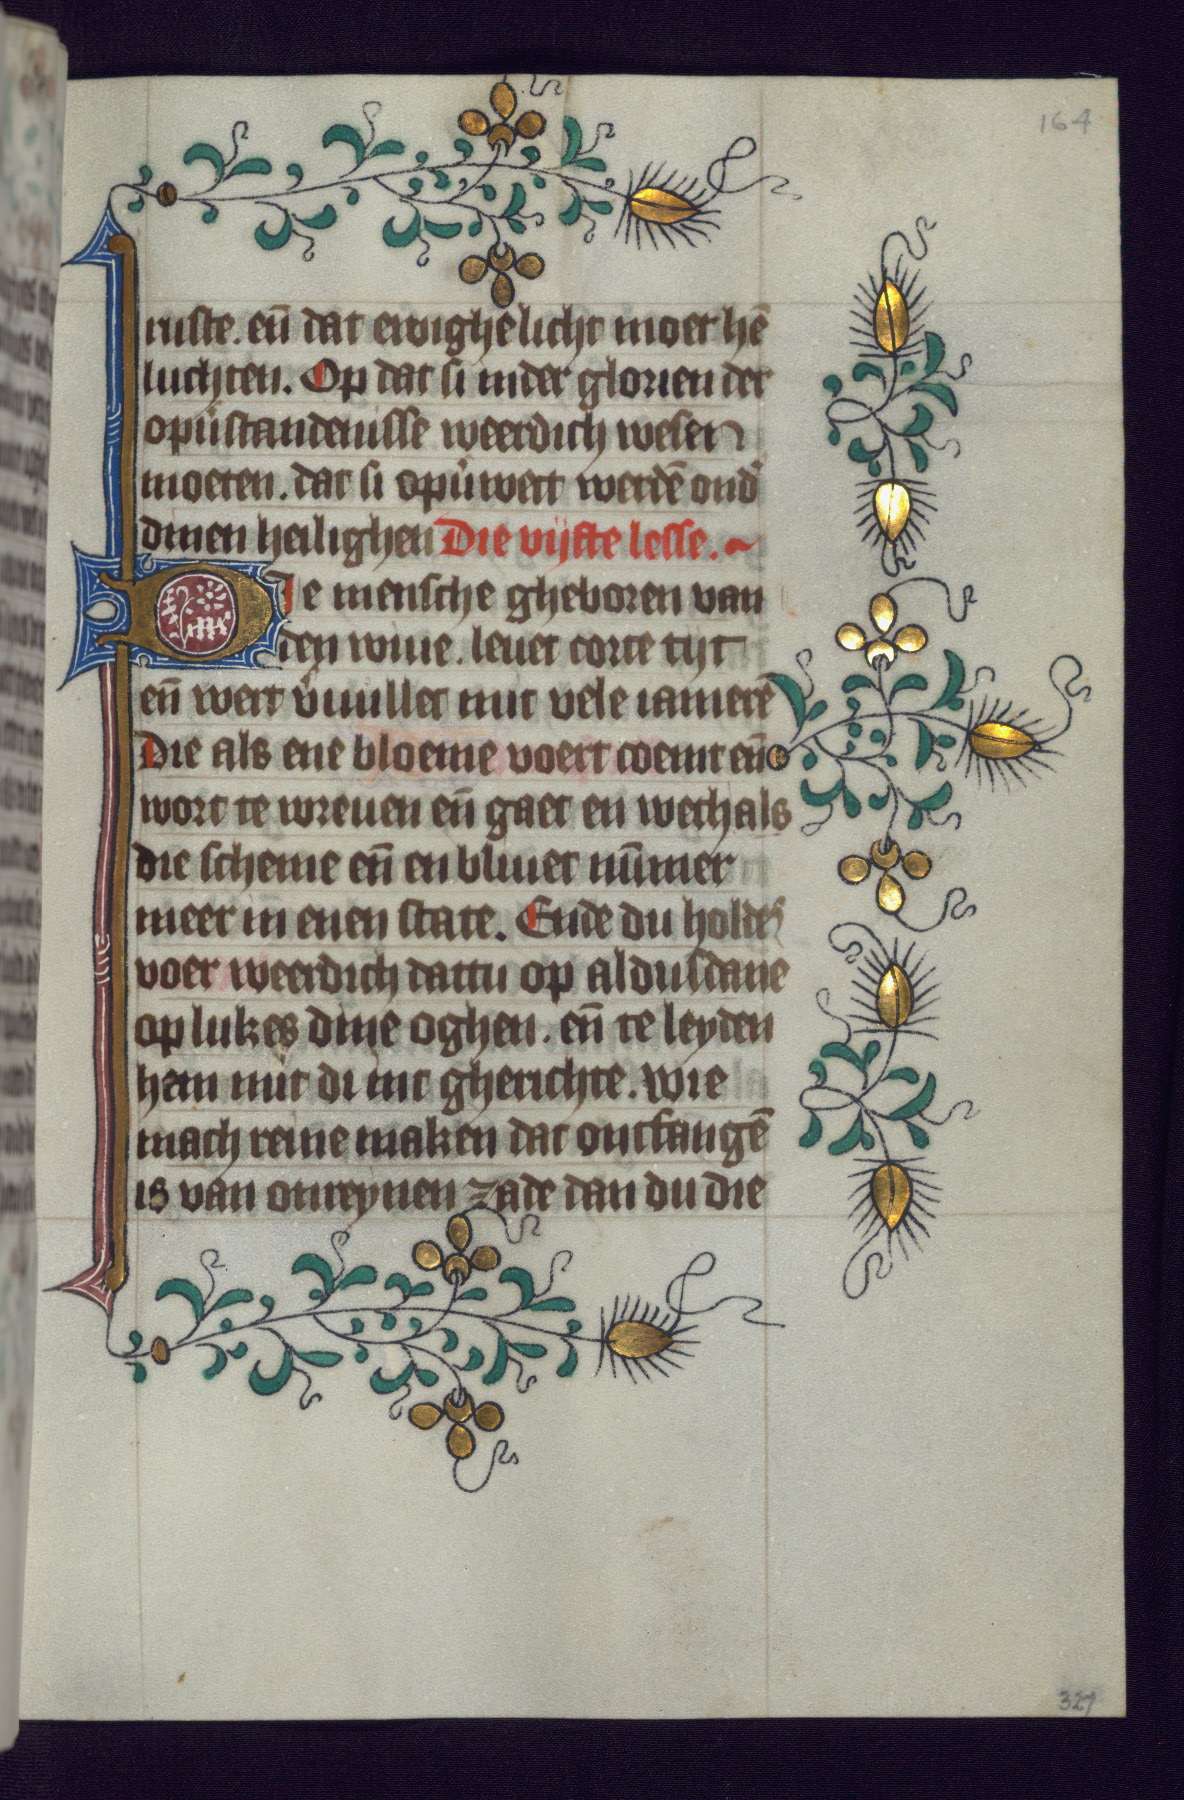 164
ruste. en̄ dat ewighe licht moet hē
luchten. Op dat si inder glorien der
opu̇standenisse weerdich wesen
moeten. dat si opu̇wect werdē ond̓
dinen heilighen Die vijfte lesse.
Die mensche gheboren van
den wiue. leuet corte tijt
en̄ wert v̓uullet mit vele iamerē
Die als ene bloeme voert coemt en̄
wort te wreuen en̄ gaet en wech als
die scheme en̄ en bliuet nūmer
meer in enen state. Ende du holdes
voer weerdich dattu op aldusdane
op lukes dine oghen. en̄ te leyden
hem mit di int gherichte. wie
mach reine maken dat ontfangē
is van onreynen zade dan du die
327